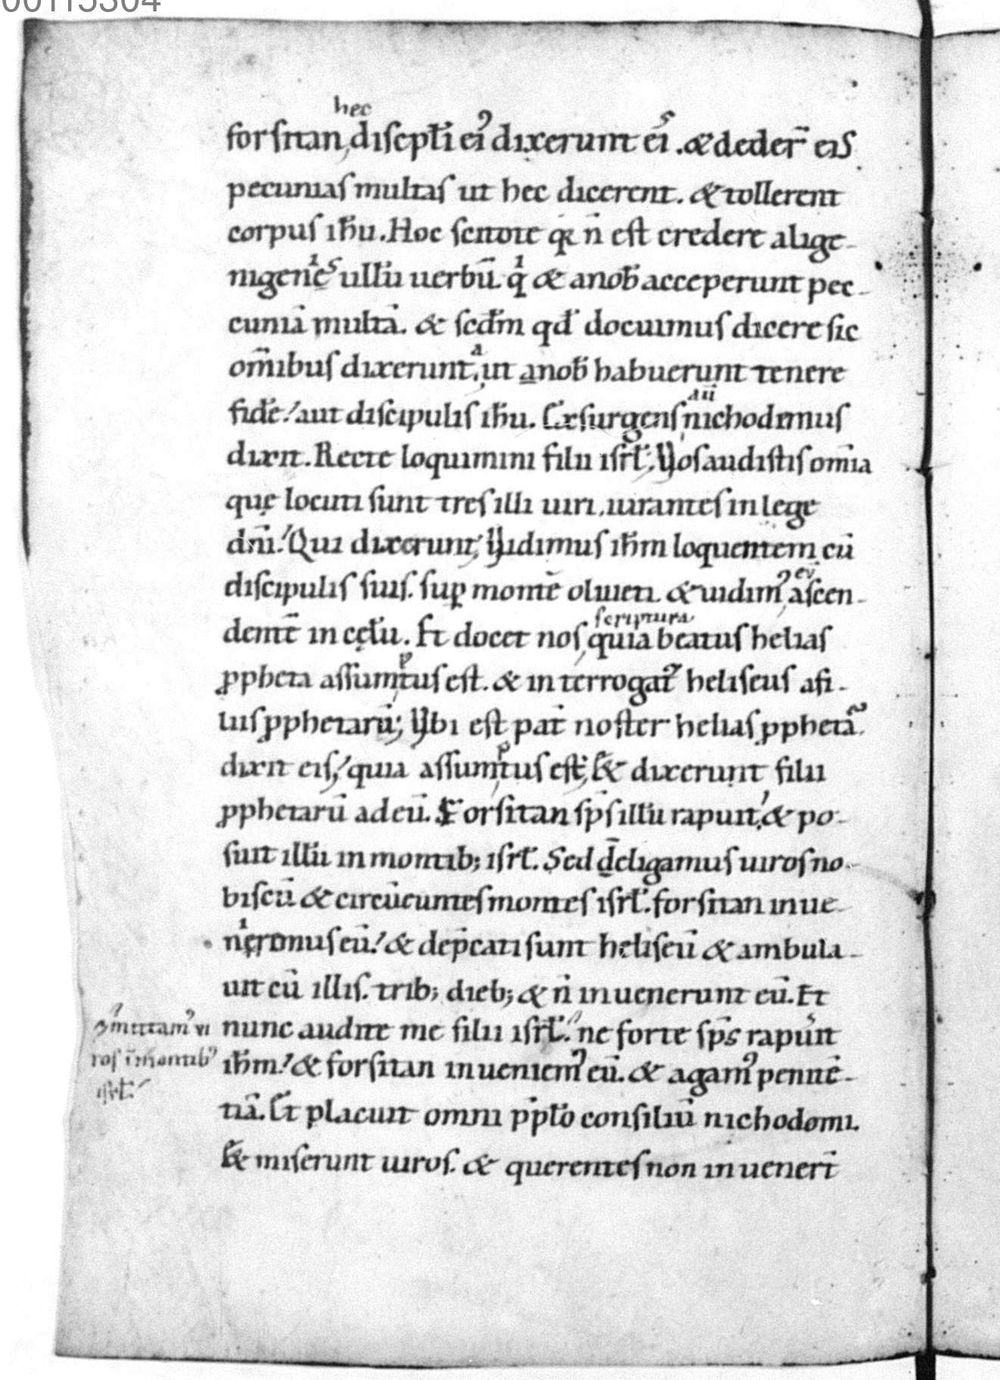 00115304
hec
forsitan discipl̄i ei᾽ dixerunt ei᾽. & deder̄ eis
pecunias multas ut hec dicerent. & tollerent
corpus ih̄u. Hoc scitote q̇ n̄ est credere alige-
nigenis ullū uerbū. q̇ & a nob̄ acceperunt pec-
cuniā multā. & scd̄m qd̄ docuimus dicere sic
om̄ibus dixerunt, ut a nob̄ habuerunt tenere
fidē! aut discipulis ih̄u. Exsurgens nichodemus
dixit. Recte loquimini filii isrł. Vos audistis om̄ia
quę locuti sunt tres illi uiri, iurantes in lege
dn̄i! Qui dixerunt; Vidimus ih̄m loquentem cū
discipulis suis. suꝑ montē oliueti. & uidim᾽ eū ascen-
dentē in cęlū. Et docet nos scriptura quia beatus helias
ꝓpheta assumptus est. & interrogat᾽ heliseus a fi-
liis ꝓphetarū; Vbi est pat̄ noster helias ꝓphetā.
dixit eis! quia assumptus est; & dixerunt filii
ꝓphetarū ad eū. Forsitan sp̄s illū rapuit! & po-
suit illū in montib; isrł. Sed deligamus uiros no-
biscū & circūeuntes montes isrł. forsitan inue-
nięmus eū! & dep̄cati sunt heliseū & ambula-
uit cū illis. trib; dieb; & n̄ inuenerunt eū. Et
nunc audite me filii isrł. ne forte sp̄s rapuit
ih̄m! & forsitan inueniem᾽ eū. & agam᾽ penitē-
tiā. Et placuit omni p̄pło consiliū nichodomi.
& miserunt uiros. & querentes non inuenert̄
mittam᾽ ui
ros ī montib᾽
isrł